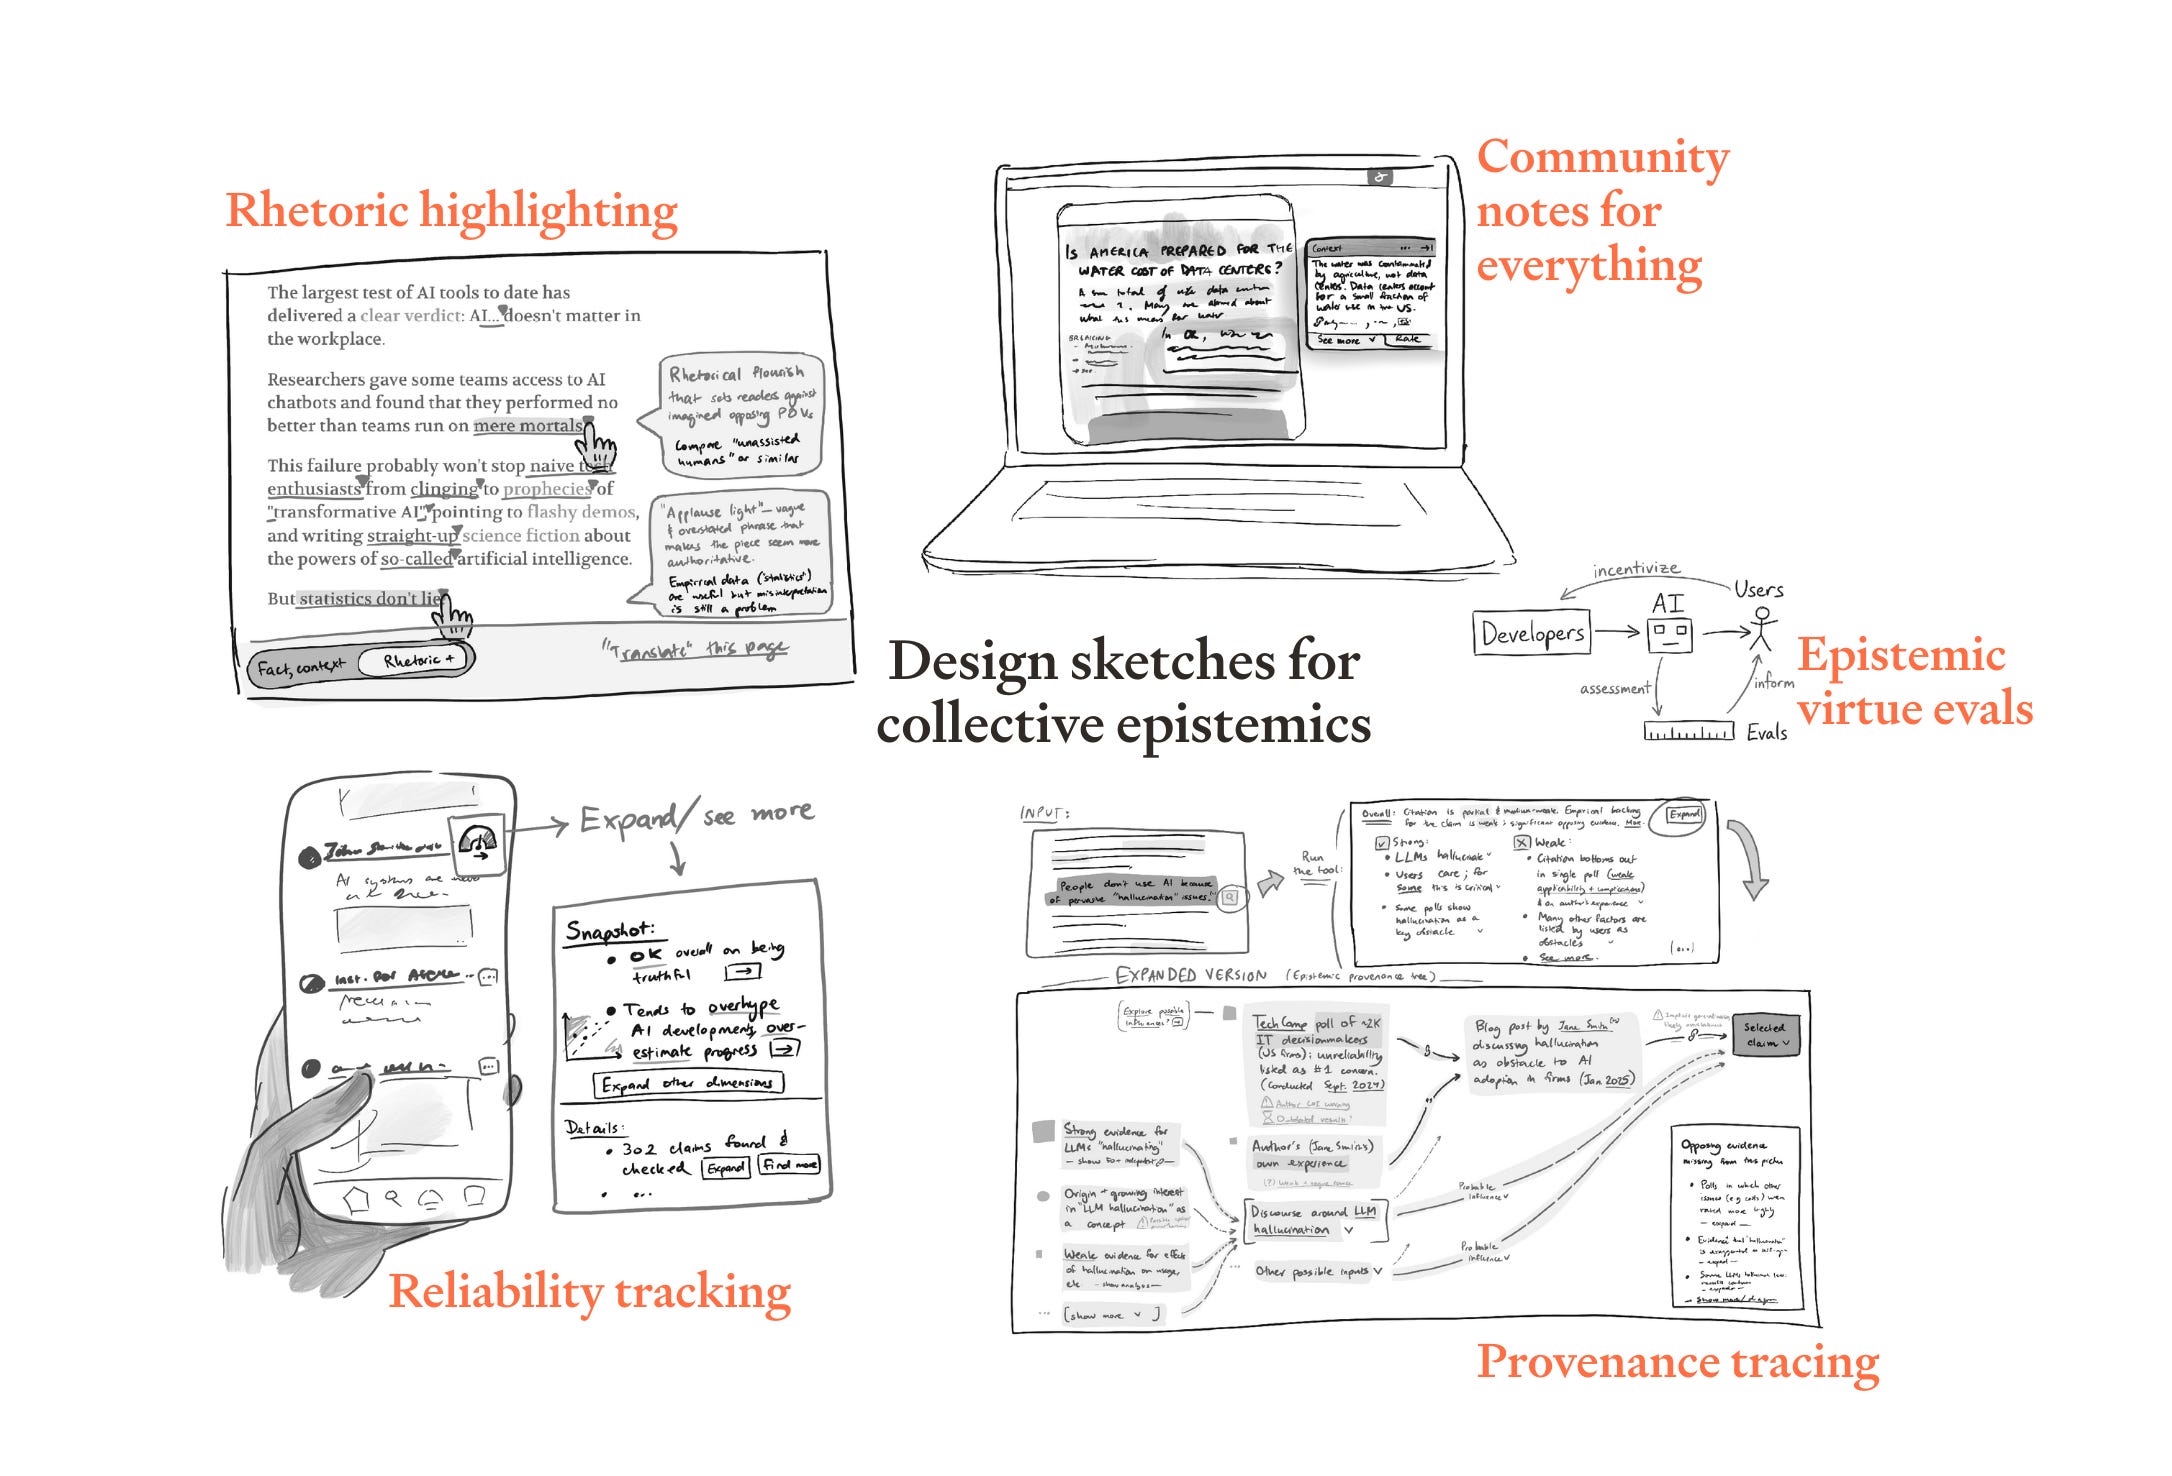 Rhetoric highlighting
The largest test of AI tools to date has
delivered a clear verdict: AI... doesn't matter in
the workplace.
Researchers gave some teams access to AI
chatbots and found that they performed no
better than teams run on mere mortals
This failure probably won't stop naive tech
enthusiasts from clinging to prophecies of
"transformative AI", pointing to flashy demos,
and writing straight-up science fiction about
the powers of so-called artificial intelligence.
But statistics don't lie
Rhetorical flourish
that sets readers against
imagined opposing POVs
Compare "unassisted
humans" or similar
"Applause light" — vague
& overstated phrase that
makes the piece seem more
authoritative.
Empirical data ("statistics")
are useful but misinterpretation
is still a problem
Fact, context
Rhetoric +
"Translate" this page
Community
notes for
everything
IS AMERICA PREPARED FOR THE
WATER COST OF DATA CENTERS?
Context
The water was contaminated
by agriculture, not data
centers. Data centers account
for a small fraction of
water use in the US.
See more
Rate
Design sketches for
collective epistemics
incentivize
Developers
AI
Users
assessment
inform
Evals
Epistemic
virtue evals
Expand/see more
AI systems are
Snapshot:
OK overall on being
truthful
Tends to overhype
AI developments, over-
estimate progress
Expand other dimensions
Details:
302 claims found &
checked Expand Find more
...
Reliability tracking
INPUT:
People don't use AI because
of pervasive "hallucination" issues.
Run
the tool:
Overall: Citation is partial & medium-weak. Empirical backing
for the claim is weak; significant opposing evidence. More.
Expand
Strong:
LLMs hallucinate
Users care; for
some this is critical
Some polls show
hallucination as a
key obstacle
Weak:
Citation bottoms out
in single poll (weak
applicability + implications)
& on author's experience
Many other factors are
listed by users as
obstacles
See more.
(...)
EXPANDED VERSION (Epistemic provenance tree)
Explore possible
influences?
TechCamp poll of ~2K
IT decisionmakers
(US firms); unreliability
listed as #1 concern.
(Conducted Sept. 2024)
Author COI warning
Outdated results?
Author's (Jane Smith's)
own experience
Blog post by Jane Smith
discussing hallucination
as obstacle to AI
adoption in firms (Jan 2025)
Selected
claim
Strong evidence for
LLMs "hallucinating"
Origin + growing interest
in "LLM hallucination" as
a concept
Weak evidence for effect
of hallucination on usage,
etc — show analysis —
... [show more]
Discourse around LLM
hallucination
... Other possible inputs
Probable
influence
Probable
influence
Opposing evidence
missing from this picture
Polls in which other
issues (e.g. costs) were
rated more highly
— expand —
— expand —
— expand —
Provenance tracing